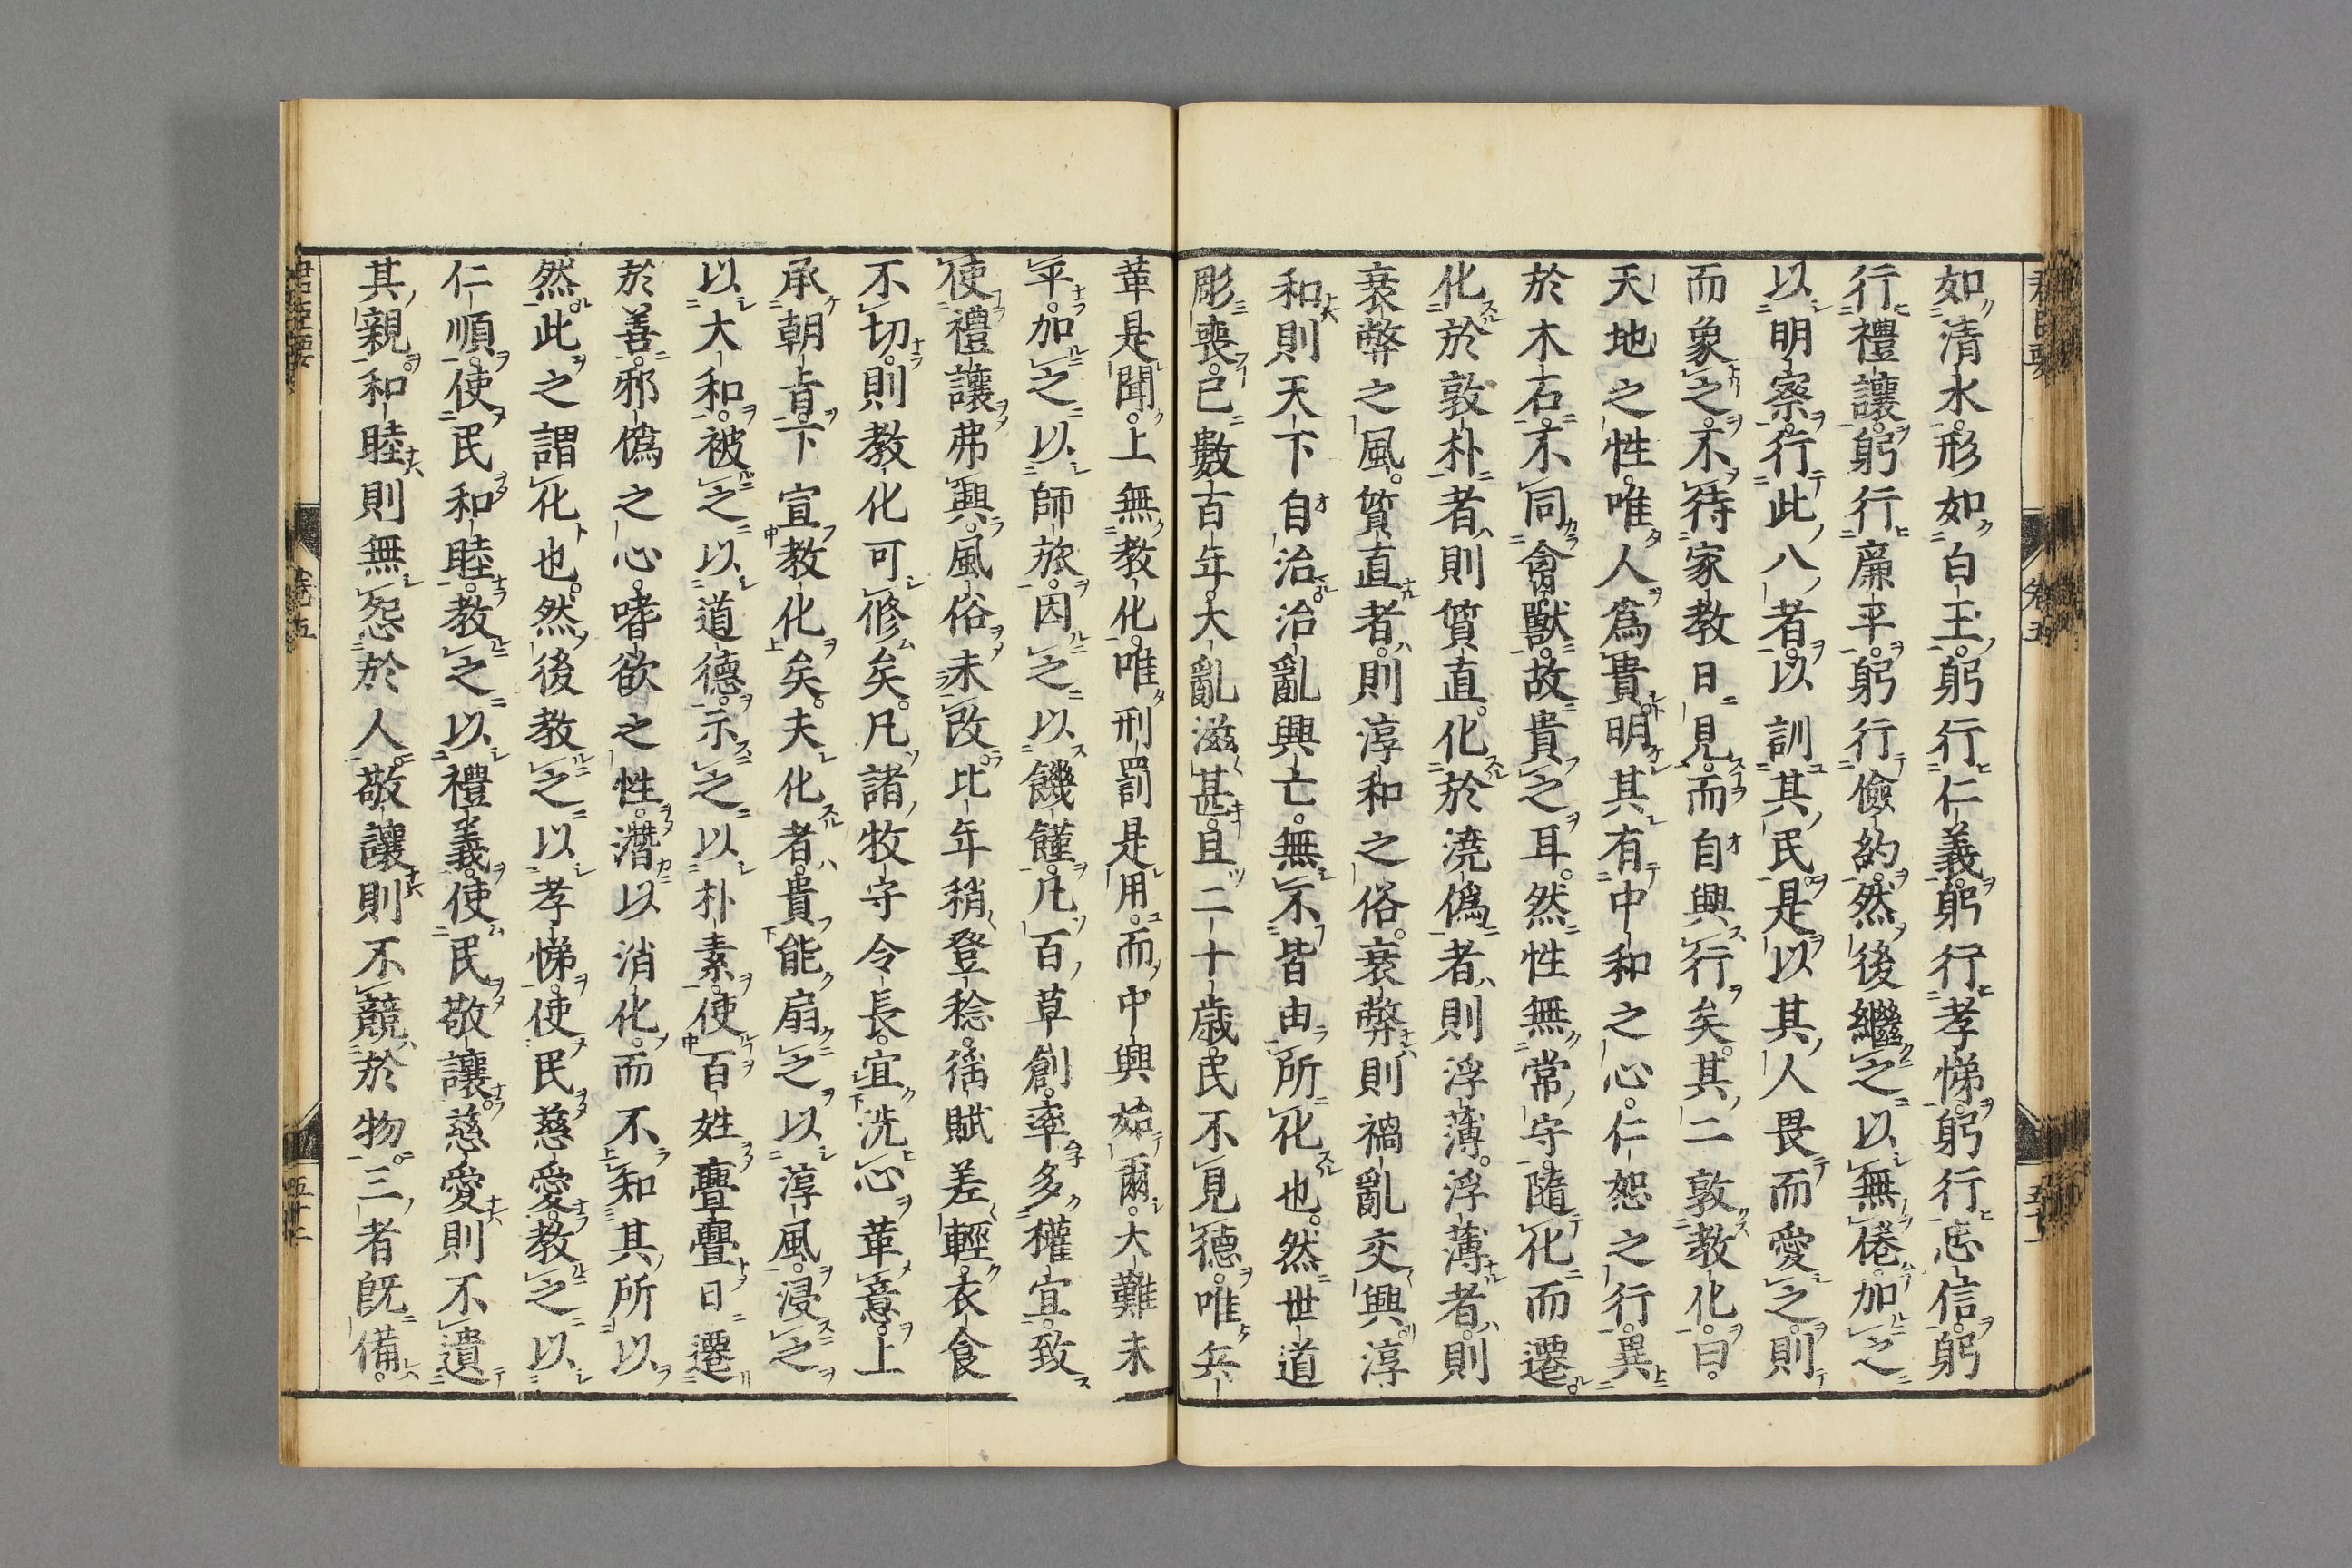 如清水形如白玉躬行仁義躬行孝悌躬行忠信躬
行禮讓躬行廉平躬行儉約然後繼之以無倦加之
以明察行此八者以訓其民是以其人畏而愛之則
而象之不待家教日見而自興行矣其二敦教化曰
天地之性唯人爲貴明其有中和之心仁恕之行異
於木石不同禽獸故貴之耳然性無常守隨化而遷
化於敦朴者則質直化於澆僞者則浮薄浮薄者則
衰弊之風質直者則淳和之俗衰弊則禍亂交興淳
和則天下自治治亂興亡無不皆由所化也然世道
彫喪已數百年大亂滋甚且二十歲民不見德唯兵
革是聞上無教化唯刑罰是用而中興始爾大難未
平加之以師旅因之以饑饉凡百草創率多權宜致
使禮讓弗興風俗未改比年稍登稔徭賦差輕衣食
不切則教化可修矣凡諸牧守令長宜洗心革意上
承朝旨下宣教化矣夫化者貴能扇之以淳風浸之
以大和被之以道德示之以朴素使百姓亹亹日遷
於善邪僞之心嗜欲之性潛以消化而不知其所以
然此之謂化也然後教之以孝悌使民慈愛教之以
仁順使民和睦教之以禮義使民敬讓慈愛則不遺
其親和睦則無怨於人敬讓則不競於物三者既備
卷五
五十二